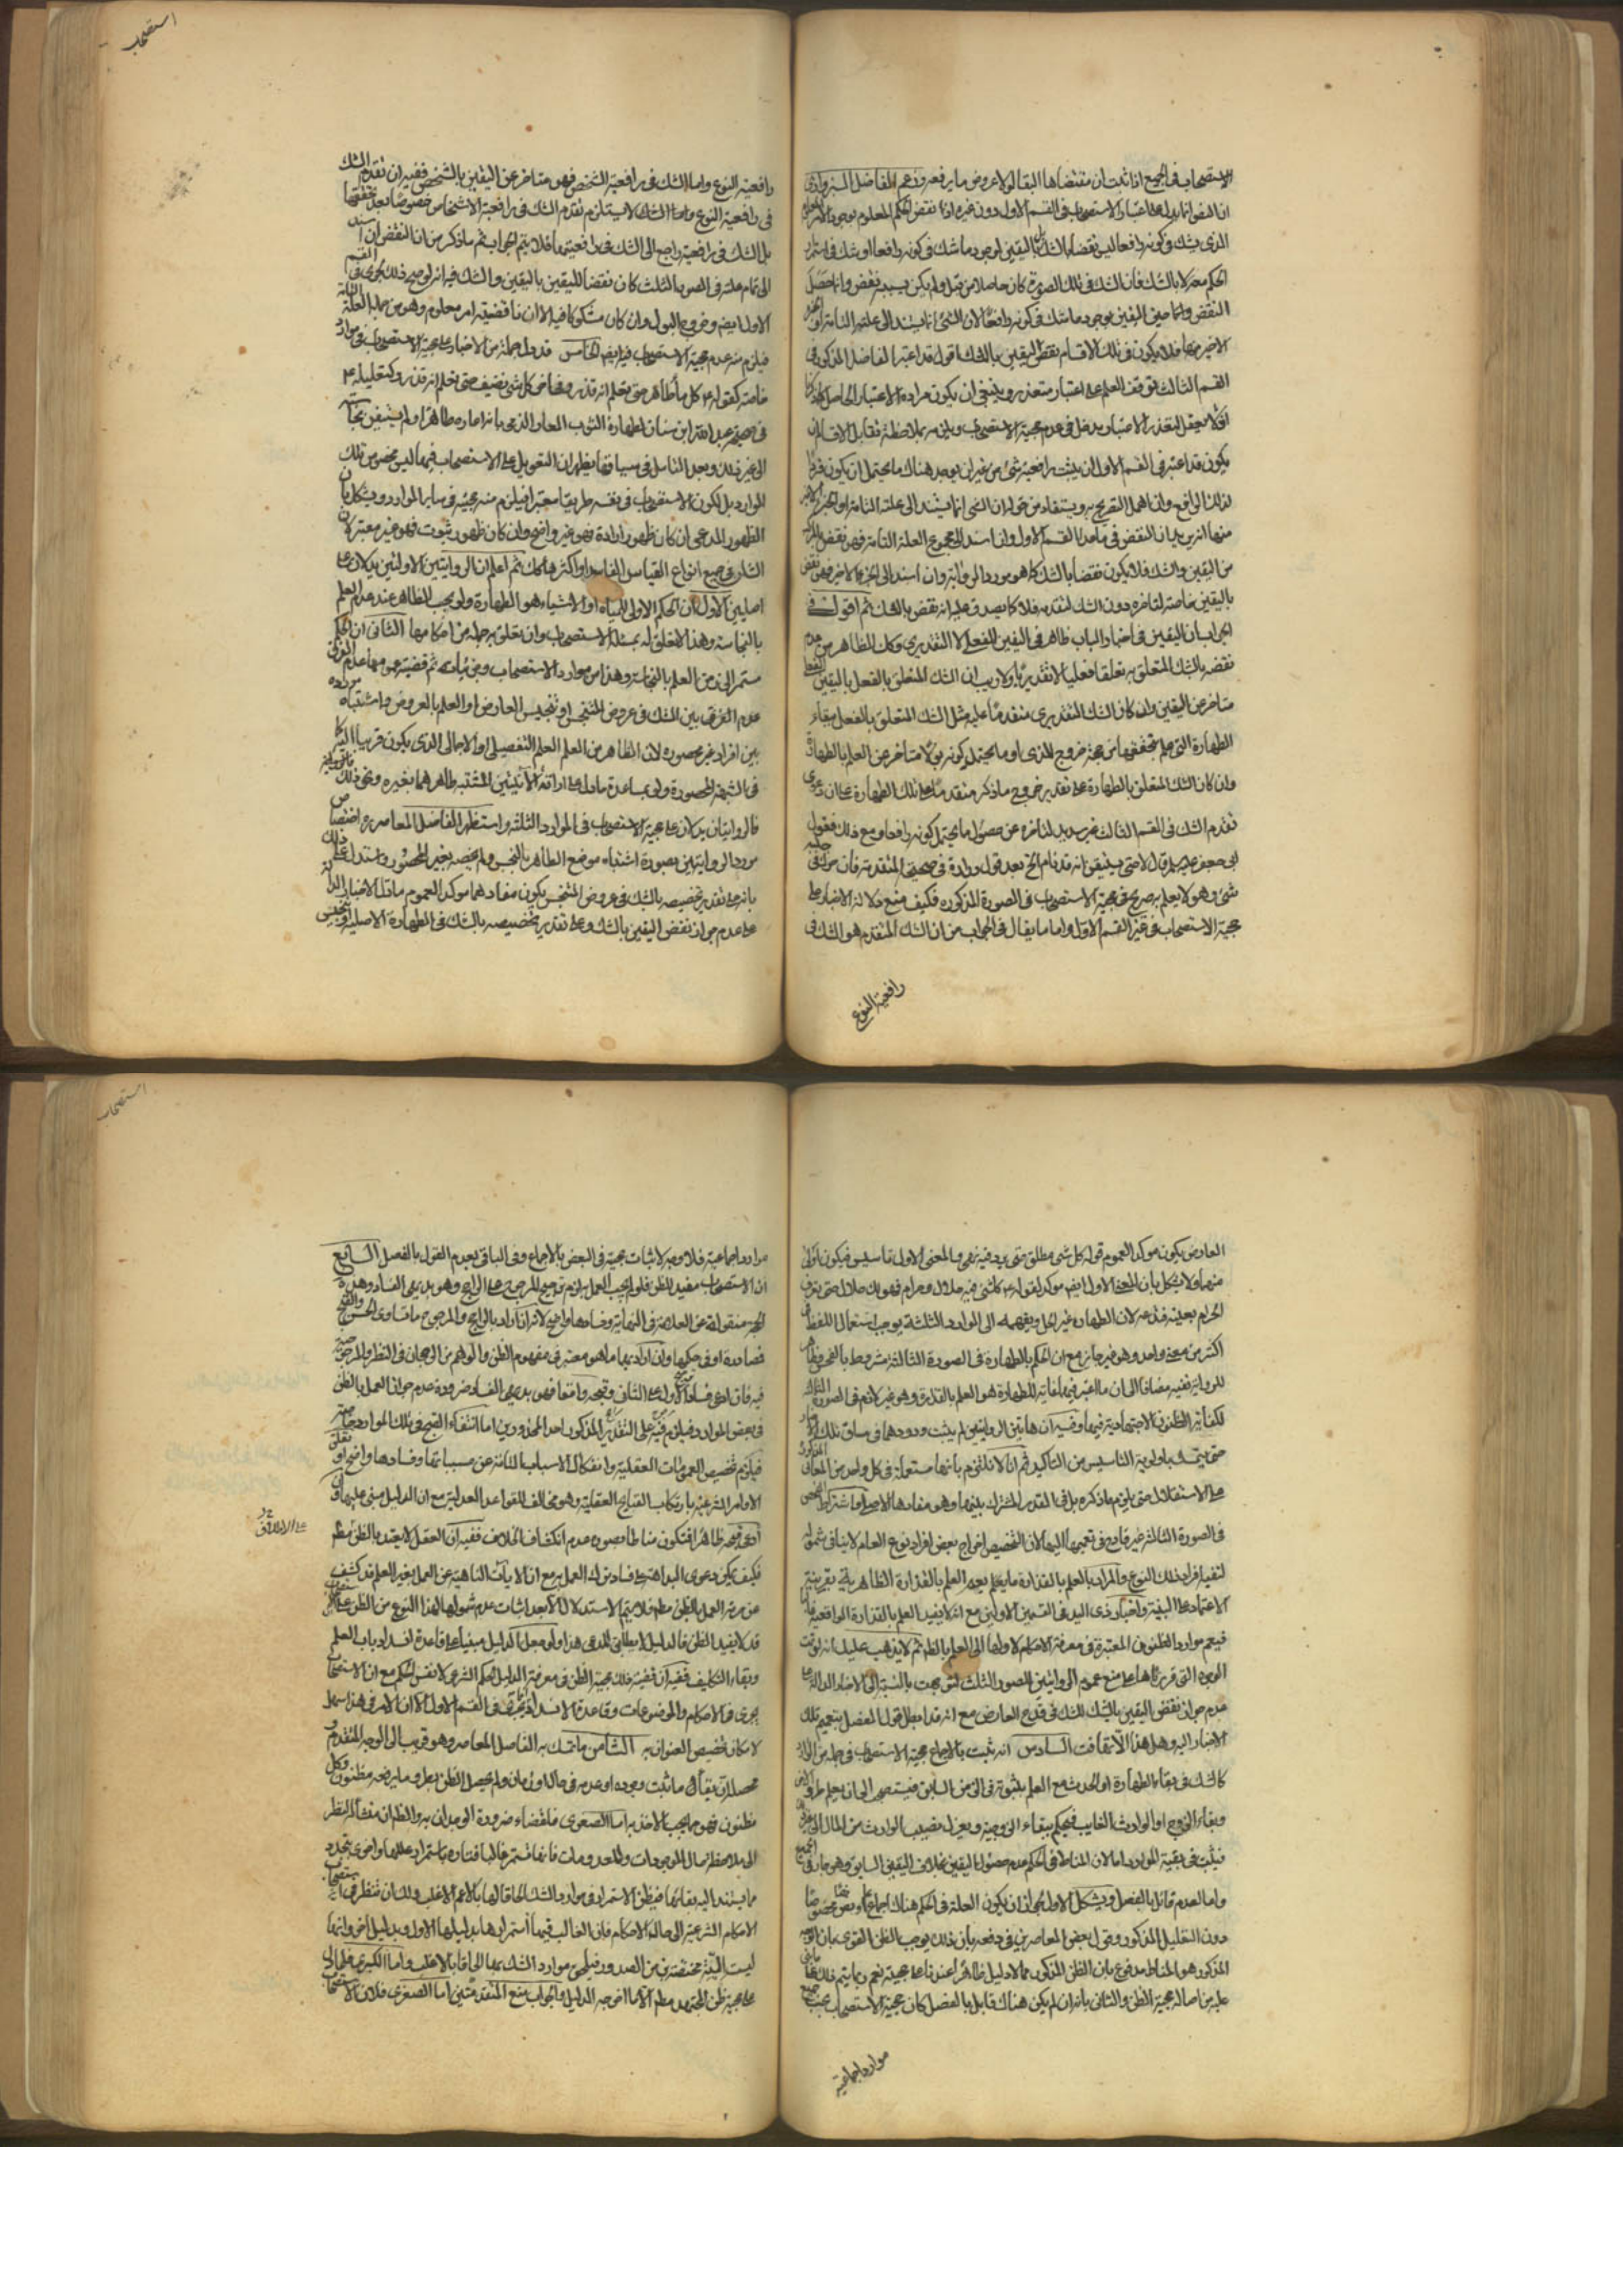 الاستصحاب فى الجميع اذا ثبت ان مقتضاها البقاء لولا عروض ما يرفعه وزعم الفاضل السبزوارى
ان النص انما يدل على اعتبار الاستصحاب فى القسم الاول دون غيره اذا نقض الحكم المعلوم بوجود الامر
الذى يشك فى كونه رافعا ليس نقضا بالشك بل باليقين لوجود ما شك فى كونه رافعا او شك فى استمرار
الحكم معه لا بالشك فان الشك فى تلك الصورة كان حاصلا من قبل ولم يكن بسببه نقض وانما حصل
النقض حين اليقين بوجود ما شك فى كونه رافعا لان الشئ انما يستند الى علته التامة او الجزء
الاخير منها فلا يكون فى تلك الاقسام نقض اليقين بالشك اقول قد اعتبر الفاضل المذكور فى
القسم الثالث توقف العلم على اعتبار متعذر وينبغى ان يكون مراده الاعتبار الحاصل
لتعذر الاعتبار مدخل فى عدم حجية الاستصحاب ويلزمه بملاحظة تقابل الاقسام ان
يكون قد اعتبر فى القسم الاول ان يثبت رافعية شئ من غير ان يوجد هناك ما يحتمل ان يكون فردا
لذلك الرافع وان اهمل التصريح به ويستفاد من قوله ان الشئ انما يستند الى علته التامة او الجزء الاخير
منها انه النقض فى ما عدا القسم الاول وان اسند الى مجموع العلة التامة فهو نقض
من اليقين والشك فلا يكون نقضا بالشك كما هو مورد الرواية وان اسند الى الجزء الاخير فهو نقض
باليقين خاصة لتاخره دون الشك لتقدمه فلا يصدق عليه انه نقض بالشك ثم اقول فى
الجواب ان اليقين فى اخبار الباب ظاهر فى اليقين الفعلى لا التقديرى وكك الظاهر من عدم
نقضه بالشك المتعلق به تعلقا فعليا لا تقديريا ولا ريب ان الشك المتعلق بالفعل باليقين الفعلى
متاخر عن اليقين وان كان الشك التقديرى متقدما عليه مثل الشك المتعلق بالفعل ببقاء
الطهارة التى علم بتحققها من جهة خروج المذى او ما يحتمل كونه بولا متاخر عن العلم بالطهارة
وان كان الشك المتعلق بالطهارة على تقدير خروج ما ذكر متقدما على تلك الطهارة على ان دعوى
تقدم الشك فى القسم الثالث غير سديد لتاخره عن حصول ما يحتمل كونه رافعا ومع ذلك فقول
ابى جعفر عليه السلم قال لا حتى يستيقن انه قد نام الخ بعد قول زرارة فى صحيحته المتقدمة فان حرك فى جنبه
شئ وهو لا يعلم به صريح فى حجية الاستصحاب فى الصورة المذكورة فكيف منع دلالة الاخبار على
حجية الاستصحاب فى غير القسم الاول واما ما يقال فى الجواب من ان الشك المتقدم هو الشك فى
رافعية النوع
استصحاب
رافعية النوع واما الشك فى رافعية الشخص فهو متاخر عن اليقين بالشخص ففيه ان تقدم الشك
فى رافعية النوع يستلزم تقدم الشك فى رافعية الاشخاص خصوصا بعد تحققها
بل الشك فى رافعيته راجع الى الشك فى رافعيتها فلا يتم الجواب ثم ما ذكر من ان النقض ان اسند
الى تمام علته فى الصور الثلث كان نقضا لليقين باليقين والشك فيه انه لو صح ذلك لجرى فى القسم
الاول ايضا وخروج البول وان كان مشكوكا فيه الا ان ناقضيته امر معلوم وهو من جملة العلة التامة
فيلزم منه عدم حجية الاستصحاب فيه ايضا الخامس قد دل جملة من الاخبار على حجية الاستصحاب فى موارد
خاصة كقوله ع كل ماء طاهر حتى تعلم انه قذر وقوله كل شئ نظيف حتى تعلم انه قذر وكتعليله ع
فى صحيحة عبد الله ابن سنان لطهارة الثوب المعار للذمى بانه اعاره طاهرا ولم يستيقن نجاسته
الى غير ذلك وبعد التامل فى سياقها يظهر ان التعويل على الاستصحاب فيها ليس لخصوص تلك
الموارد بل لكون الاستصحاب فى نفسه طريقا معتبرا فيلزم منه حجيته فى ساير الموارد ويشكل بان
الظهور المدعى ان كان ظهور ارادة فهو غير واضح وان كان ظهور ثبوت فهو غير معتبر لان
الشان فى جميع انواع القياس الفاسد او اكثرها كك ثم اعلم ان الروايتين الاولتين يدلان على
اصلين الاول ان الحكم الاولى للمياه او الاشياء هو الطهارة ولو بحسب الظاهر عند عدم العلم
بالنجاسة وهذا لا تعلق له بمسئلة الاستصحاب وان تعلق به جملة من احكامها الثانى ان الحكم
مستمر الى زمن العلم بالنجاسة وهذا من موارد الاستصحاب وجزئياته ثم قضية عمومهما عدم الفرق
عدم الفرق بين الشك فى عروض المتنجس او تنجيس العارض او العلم بالعروض واشتباه موارده
بين افراد غير محصورة لان الظاهر من العلم العلم التفصيلى او الاجمالى الذى يكون قريبا اليه كما
فى الشبهة المحصورة ولو بمساعدة ما دل على اراقة الانائين المشتبه طاهرهما بغيره ونحو ذلك
فالروايتان يدلان على حجية الاستصحاب فى الموارد الثلثة واستظهر الفاضل المعاصر ره اختصاص
مورد الروايتين بصورة اشتباه موضع الطاهر بالنجس ولم يخصه بغير المحصور واستدل على ذلك
بانه على تقدير تخصيصه بالشك فى عروض المتنجس يكون مفادهما موكدا لعموم ما دل الاخبار الدالة
على عدم جواز نقض اليقين بالشك وعلى تقدير تخصيصه بالشك فى الطهارة الاصلية وتنجيس
العارض يكون موكدا لعموم قوله كل شئ مطلق حتى يرد فيه نهى وبالمعنى الاول تاسيس فيكون اولى
منهما ولا يشكل بان المعنى الاول ايضا موكد لقوله ع كل شئ فيه حلال وحرام فهو لك حلال حتى تعرف
الحرام بعينه فتدعه لان الطهارة غير الحل وتعميمه الى الموارد الثلثة يوجب استعمال اللفظ فى
اكثر من معنى واحد وهو غير جايز مع ان الحكم بالطهارة فى الصورة الثالثة مشروط بالفحص وظاهر
الرواية نفيه مضافا الى ان ما اعتبر فيها غاية للطهارة هو العلم بالقذارة وهو غير لازم فى الصورة الثالثة
لكفاية الظنون الاجتهادية فيها وفيه ان هاتين الروايتين لم يثبت ورودهما فى مساق تلك الاخبار
حتى يتمسك باولوية التاسيس من التاكيد ثم انا لا نلتزم بانهما مستعملة فى كل واحد من المعانى المذكورة
على الاستقلال حتى يلزم ما ذكره بل فى القدر المشترك بينها وهو مفادها الاصلى واشتراط الفحص
فى الصورة الثالثة غير قادح فى تعميمها اليها لان التخصيص اخراج بعض افراد نوع العام لا ينافى شموله
لبقية افراد ذلك النوع والمراد بالعلم بالقذارة ما يعم العلم بالقذارة الظاهرية بقرينة
الاعتماد على البينة واخبار ذى اليد فى القسمين الاولين مع انه لا يفيد العلم بالقذارة الواقعية غالبا
فيعم موارد الظنون المعتبرة فى معرفة الاحكام لاولها الى العلم بالظاهر ثم لا يذهب عليك انه لو تمت
الوجوه التى قررناها على منع عموم الروايتين للصور الثلث لتوجهت بالنسبة الى الاخبار الدالة على
عدم جواز نقض اليقين بالشك للشك فى قدح العارض مع انه قد ابطل قول المفصل بتعميم تلك
الاخبار اليه وهل هذا الا تهافت السادس انه ثبت بالاجماع حجية الاستصحاب فى جملة من الموارد
كالشك فى بقاء الطهارة او الحدث مع العلم بثبوته فى الزمن السابق فيستصحب الى ان يعلم طرو الاخر
وبقاء الزوج او الوارث الغايب فيحكم ببقاء الزوجية ويعزل نصيب الوارث من المال الى غير ذلك
فيثبت فى بقية الموارد اما لان المناط فى الحكم عدم حصول اليقين بخلاف اليقين السابق وهو جار فى الجميع
واما لعدم قائل بالفصل ويشكل الاول بجواز ان يكون العلة فى الحكم هناك اجماع او نص مخصوصا
دون التعليل المذكور وقول بعض المعاصرين فى دفعه بان ذلك يوجب الظن القوى بان الوجه
المذكور هو المناط مدفوع بان الظن المذكور مما لا دليل ظاهرا عندنا على حجيته نعم ربما يتم ذلك على ما بنى
عليه من اصالة حجية الظن والثانى بانه ان لم يكن هناك قايل بالفصل كان حجية الاستصحاب بحسب جميع
موارد اجماعية
استصحاب
موارد اجماعية فلا وجه لاثبات حجيته فى البعض بالاجماع وفى الباقى بعدم القول بالفصل السابع
ان الاستصحاب مفيد للظن فلو لم يجب العمل به لزم ترجيح المرجوح على الراجح وهو بديهى الفساد وهذه
الحجة منقولة عن العلامة فى النهاية وفسادها واضح لانه ان اراد بالراجح والمرجوح ما تساوى الحسن والقبح
فمصادرة او فى حكمها وان اراد بهما ما هو معتبر فى مفهوم الظن والوهم من الرجحان فى النظر والمرجوحية
فيه فان ادعى فساد الاول على الثانى وقبحه واقعا فهو بديهى الفساد ضرورة عدم جواز العمل بالظن
فى بعض الموارد فيلزم على التقدير المذكور احد المحذورين اما انتفاء القبح فى تلك الموارد خاصة
فيلزم تخصيص العمومات العقلية وانفكاك الاسباب التامة عن مسبباتها وفسادها واضح او تعلق
الاوامر الشرعية بارتكاب القبايح العقلية وهو مخالف للقواعد العدلية مع ان الدليل مبنى عليها وان
ادعى قبحه ظاهرا فتكون مناطا وصورة عدم انكشاف الخلاف ففيه ان العقل لا يعتد بالظن مطلقا
فكيف يمكن دعوى البداهة على فساد ترك العمل به مع ان الايات الناهية عن العمل بغير العلم قد كشفت
على الاطلاق
عن حرمة العمل بالظن مطلقا فلا يتم الاستدلال الا بعد اثبات عدم شمولها لهذا النوع من الظن
قد لا يفيد الظن فالدليل لا يطابق المدعى هذا ولو جعل الدليل مبنيا على قاعدة انسداد باب العلم
وبقاء التكاليف ففيه ان قضية ذلك حجية الظن فى معرفة الدليل الحكم الشرعى لا نفس الحكم مع ان الاستصحاب
يجرى فى الاحكام والموضوعات وقاعدة الانسداد انما تجرى فى القسم الاول الا ان الامر فى هذا سهل
لامكان تخصيص العنوان به الثامن ما تمسك به الفاضل المعاصر وهو قريب الى الوجه المتقدم
محصله ان يقال ما ثبت وجوده او عدمه فى حال او زمان ولم يحصل الظن بطرو ما يرفعه مظنون وكل
مظنون فهو مما يجب الاخذ به اما الصغرى فاقتضاء ضرورة الوجدان به والظ ان منشأه النظر
الى ملاحظة حال الموجودات والمعدومات فانها تستمر غالبا فتارة باستمرار عللها واخرى بتجدد
ما يستند اليه بقاؤها فيظن الاستمرار فى موارد الشك الحاقا لها بالاعم الاغلب ولك ان تنظر فى
الاحكام الشرعية الى حالة الاحكام فان الغالب فيها استمرارها بدليلها الاول وبدليل اخر وانها
ليست آنية مختصة بزمن الصدور فيلحق موارد الشك بها الحاقا بالاغلب واما الكبرى فلما دل
على حجية ظن المجتهد مطلقا الا ما اخرجه الدليل والجواب منع المتقدمتين اما الصغرى فلان الاستصحاب